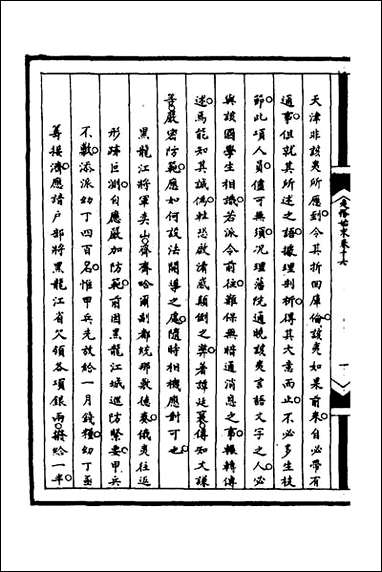 夷務始末卷十六
一
天津非該夷所應到令其折回庫倫該夷如果前來自必帶有
通事但就其所述之語據理剖析得其大意而止不必多生枝
節此項人員儘可無須況理藩院通曉該夷言語文字之人必
與該國學生相識若派令前往難保無暗通消息之事輾轉傳
述焉能知其誠偽杜恐啟清惑顛倒之弊著譚廷襄傳知文謙
等嚴密防範應如何設法開導之處隨時相機應對可也
黑龍江將軍奕山齊齊哈爾副都統那敷德奏俄夷往返
形蹟叵測自應嚴加防範前因黑龍江城巡防緊要甲兵
不敷添派幼丁四百名惟甲兵先放給一月錢糧幼丁亟
籌接濟應請戶部將黑龍江省欠領各項銀兩撥給一半